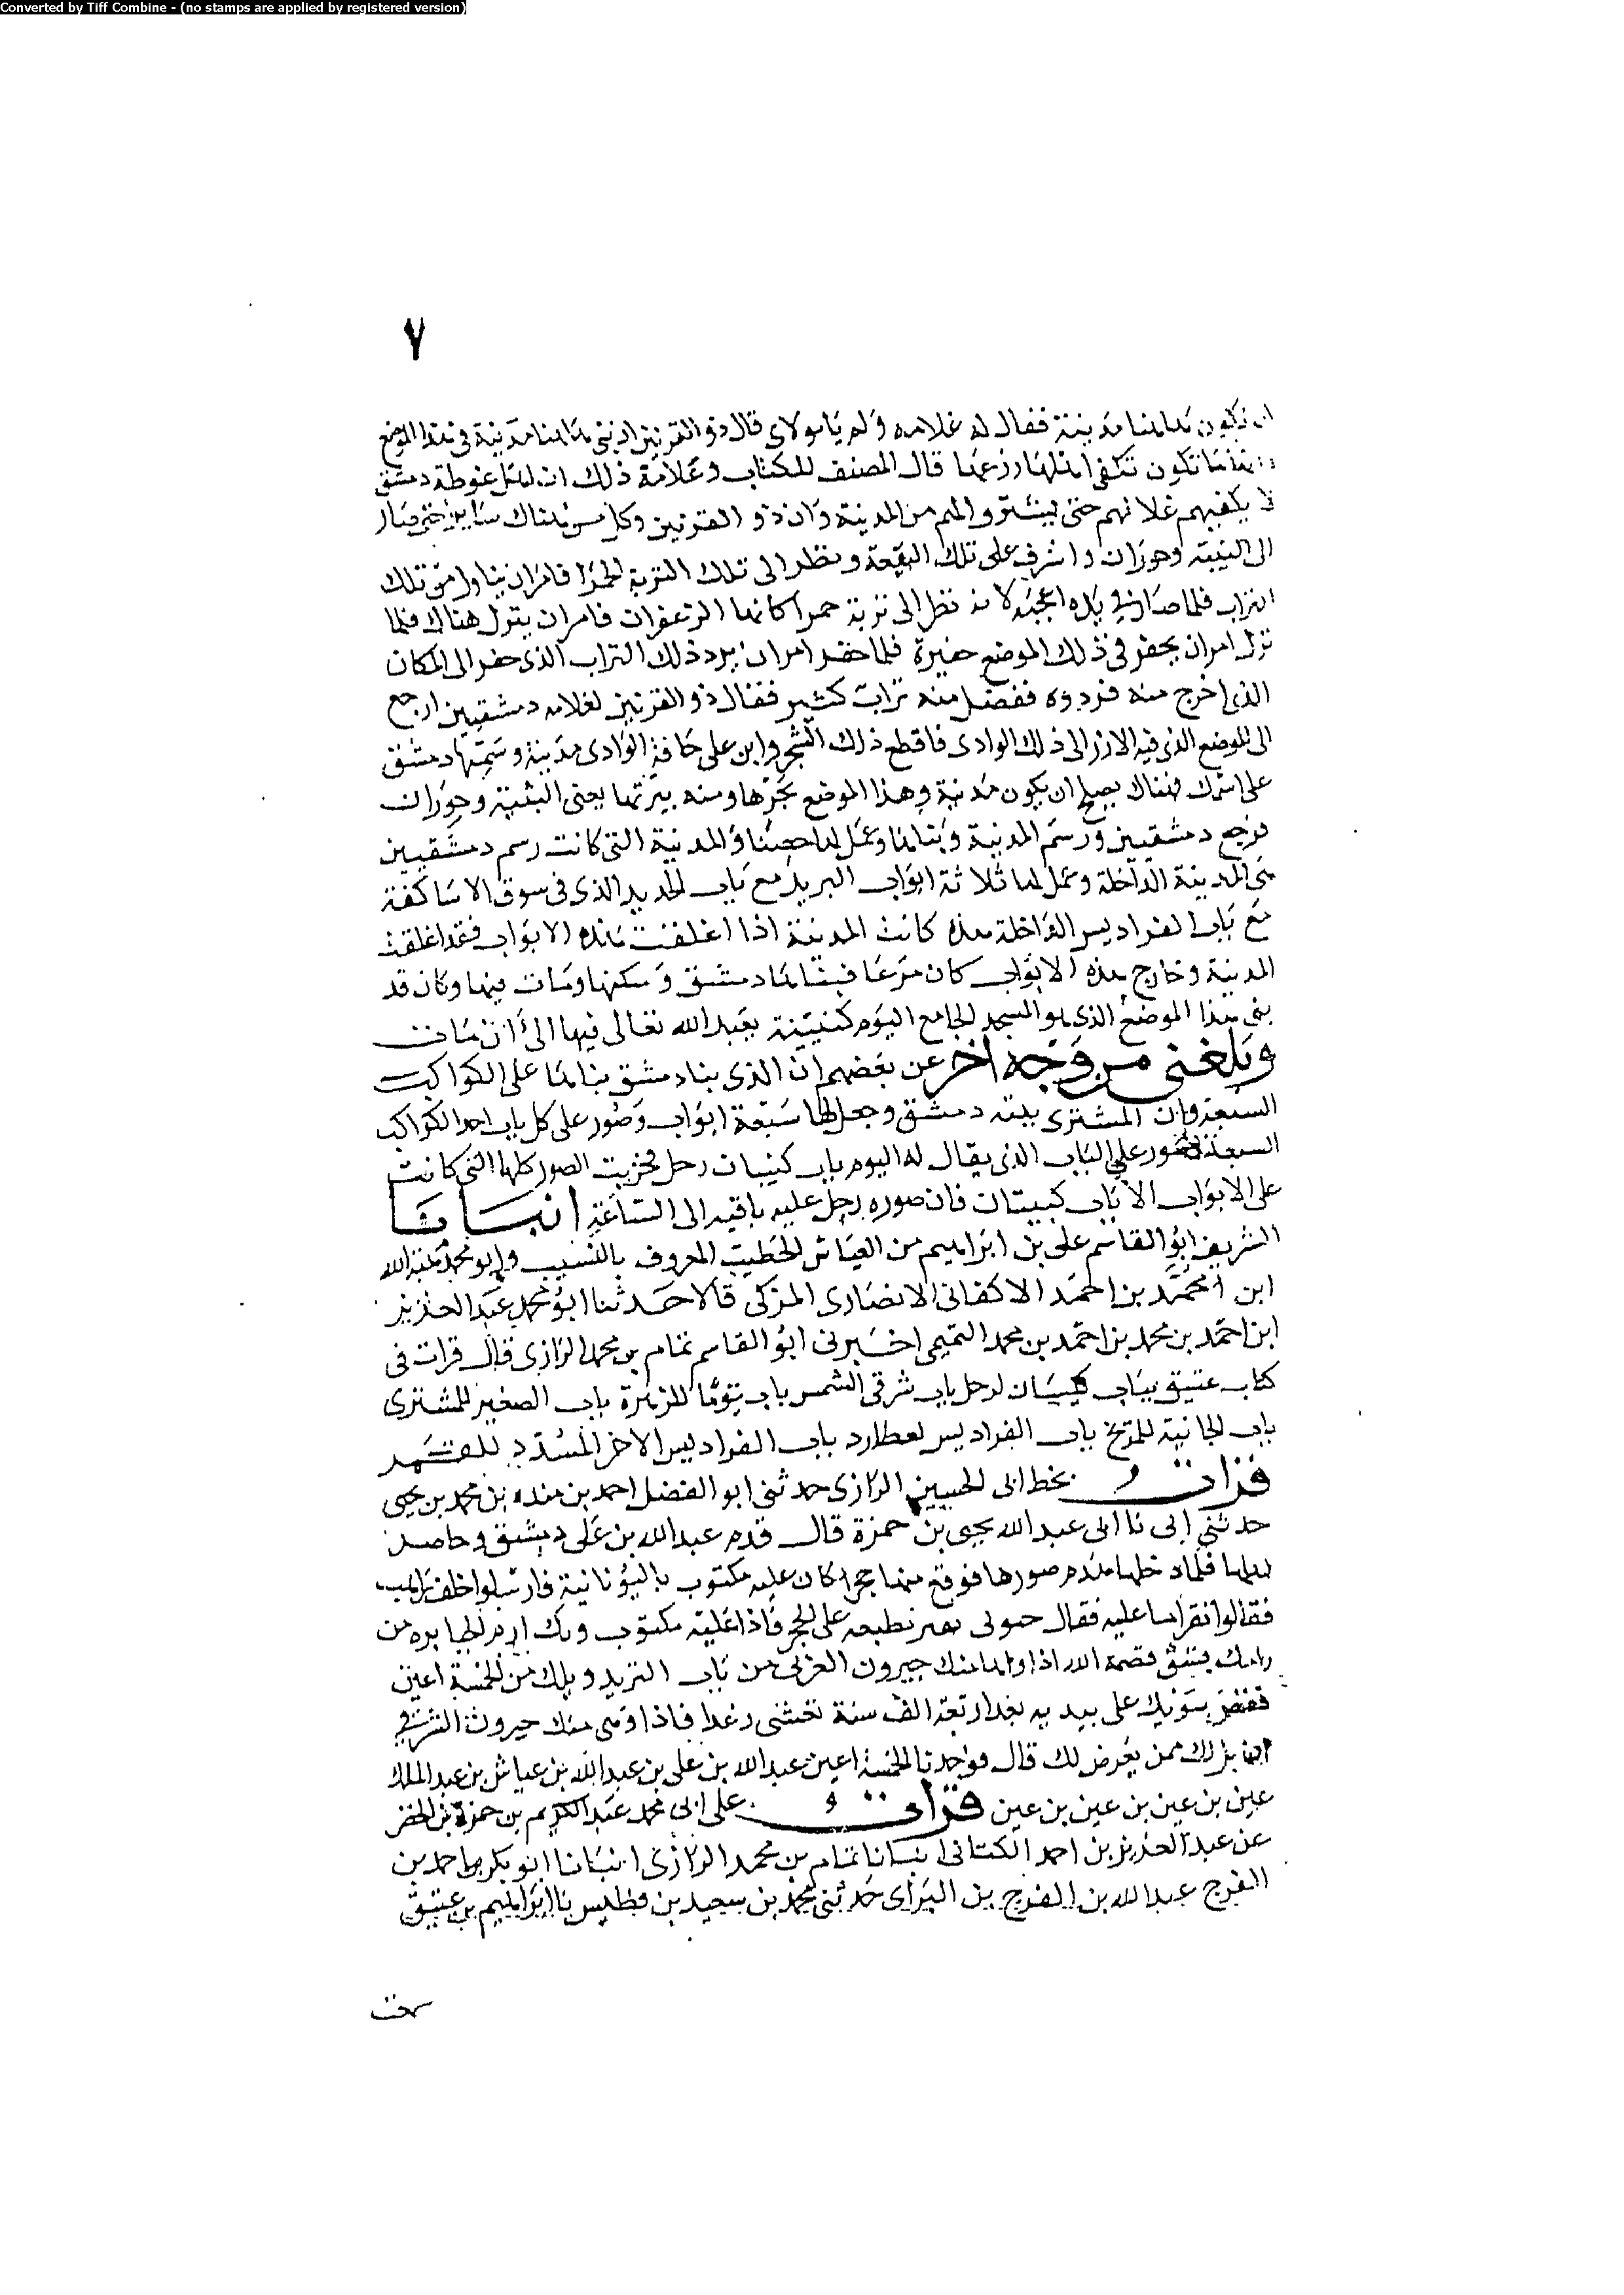 Converted by Tiff Combine - (no stamps are applied by registered version)
٧
ان تكون هاهنا مدينة فقال له غلامه ولم يا مولاي قال ذو القرنين اذ بنى هاهنا مدينة في هذا الموضع
تكون تكفي اهلها زرعها قال المصنف للكتاب وعلامة ذلك ان اهل غوطة دمشق
لا يكفيهم غلاتهم حتى يشتروا لهم من المدينة وان ذو القرنين وكل من هناك سائرين حتى صار
الى البثنية وحوران واشرف على تلك البقعة ونظر الى تلك التربة الحمرا فامر ان يناول من تلك
التراب فلما صار في يده اعجبه لانه نظر الى تربة حمرا كانها الزعفران فامر ان ينزل هناك فلما
نزل امر ان يحفر في ذلك الموضع حفيرة فلما حفر امر ان يرد ذلك التراب الذى حفر الى المكان
الذى اخرج منه فردوه ففضل منه تراب كثير فقال ذو القرنين لغلامه دمشقيين ارجع
الى الموضع الذى فيه الارز الى ذلك الوادى فاقطع ذلك الشجر وابن على حافة الوادى مدينة وسمها دمشق
على اسمك فهناك يصلح ان يكون مدينة وهذا الموضع بحرها ومنه ميرتها يعنى البثنية وحوران
فرجع دمشقيين ورسم المدينة وبناها وعمل لها حصنا والمدينة التى كانت رسم دمشقيين
هى المدينة الداخلة وعمل لها ثلاثة ابواب البريد مع باب الحديد الذى فى سوق الاساكفة
مع باب الفراديس الداخلة هذه كانت المدينة اذا اغلقت هذه الابواب فقد اغلقت
المدينة وخارج هذه الابواب كان مرعا فبنا لها دمشق وسكنها ومات فيها وكان قد
بنى هذا الموضع الذى هو المسجد الجامع اليوم كنيسة يعبد الله تعالى فيها الى ان مات
وبلغنى من وجه اخر عن بعضهم ان الذى بنا دمشق بناها على الكواكب
السبعة وان المشترى بيته دمشق وجعل لها سبعة ابواب وصور على كل باب احد الكواكب
السبعة وصور على الباب الذى يقال له اليوم باب كيسان زحل فخربت الصور كلها التى كانت
على الابواب الا باب كيسان فان صوره زحل عليه باقيه الى الساعة انبانا
الشريف ابو القاسم على بن ابراهيم من العباس الخطيب المعروف بالنسيب وابو محمد هبة الله
ابن محمد بن احمد الاكفانى الانصارى المزكى قالا حدثنا ابو محمد عبد العزيز
ابن احمد بن محمد بن احمد بن محمد التميمى اخبرنى ابو القاسم تمام بن محمد الرازى قال قرات فى
كتاب عتيق بباب كيسان لزحل باب شرقى الشمس باب توما للزهرة باب الصغير للمشترى
باب الجابية للمريخ باب الفراديس لعطارد باب الفراديس الاخر المسدد للقمر
قرات بخط ابى الحسين الرازى حدثنى ابو الفضل احمد بن منده بن محمد بن يحيى
حدثنى ابى نا ابى عبد الله يحيى بن حمزة قال قدم عبد الله بن على دمشق وحاصر
اهلها فلما دخلها هدم صورها فوقع منها حجر كان عليه مكتوب باليونانية فارسلوا خلف راهب
فقالوا نقرا ما عليه فقال على الحجر فاذا عليه مكتوب ويك ارم الجبابره من
رامك بسو قصمه الله اذا وها منك جيرون الغربى من باب البريد ويلك من الخمسة اعين
على يديه بعد اربعة الف سنة تعيشى رغدا فاذا وهى منك جيرون الشرقى
لك ممن يعرض لك قال فوجدنا الخمسة اعين عبد الله بن على بن عبد الله بن عباس بن عبد الملك
عين بن عين بن عين بن عين قرات على ابى محمد عبد الكريم بن حمزة بن الخضر
عن عبد العزيز بن احمد الكتانى انبانا تمام بن محمد الرازى انبانا ابو بكر احمد بن
الفرج عبد الله بن الفرج بن البرامى حدثنى محمد بن سعيد بن فطيس نا ابراهيم بن عتيق